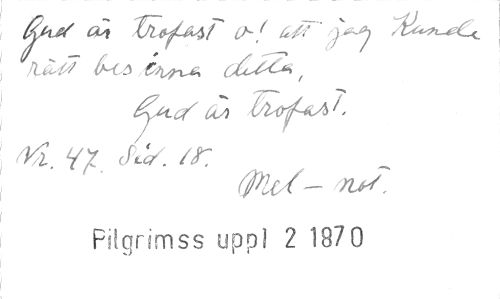 Gud är trofast o! att jag Kunde
rätt besinna detta,
Gud är trofast.
Nr. 47. Sid. 18.
Mel – not.
Pilgrimss uppl 2 1870